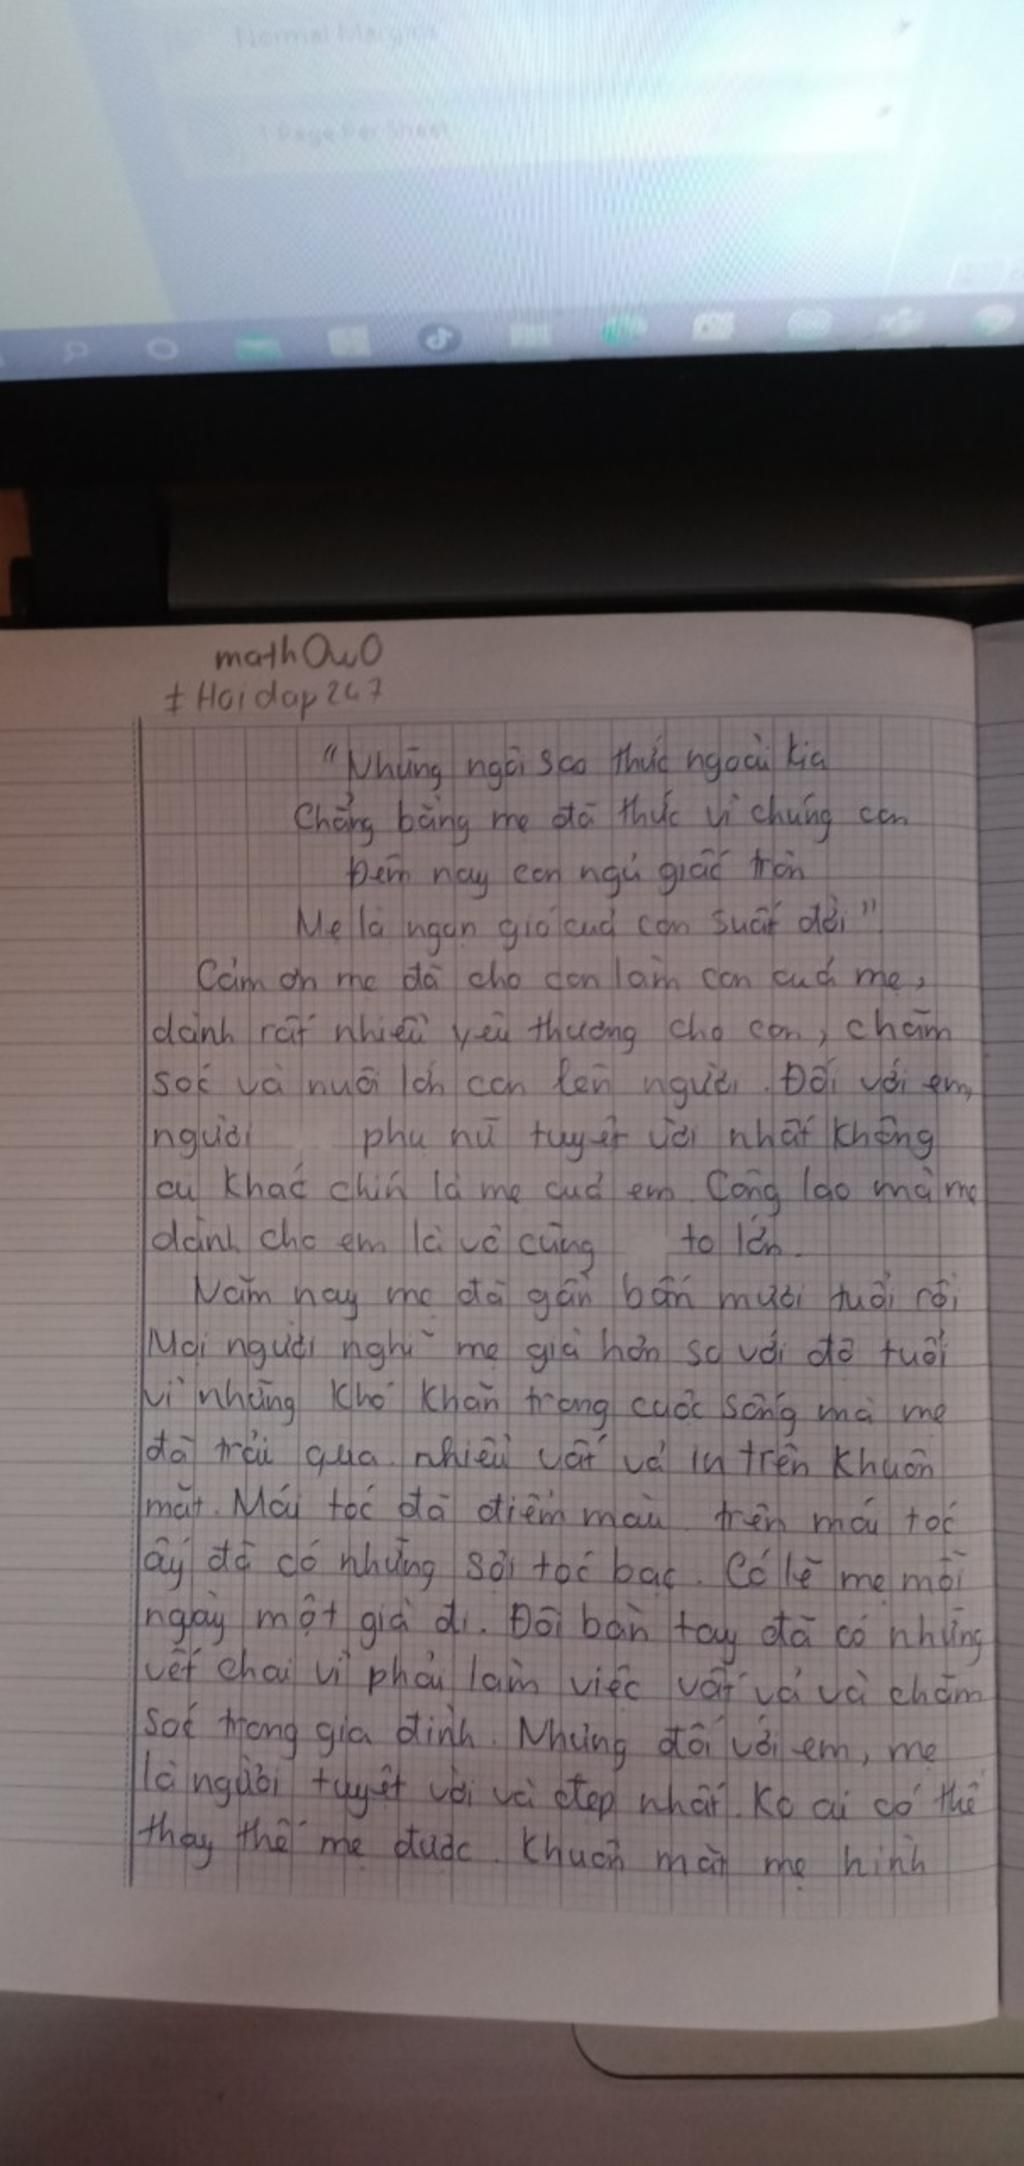 Normal Margins
1 Page Per Sheet
mathOwO
+ Hoidap247
"Những ngôi sao thức ngoài kia
Chẳng bằng mẹ đã thức vì chúng con
Đêm nay con ngủ giấc tròn
Mẹ là ngọn gió của con suốt đời"
Cảm ơn mẹ đã cho con làm con của mẹ,
dành rất nhiều yêu thương cho con, chăm
sóc và nuôi lớn con lên người. Đối với em,
người phụ nữ tuyệt vời nhất không
ai khác chính là mẹ của em. Công lao mà mẹ
dành cho em là vô cùng to lớn.
Năm nay mẹ đã gần bốn mươi tuổi rồi
Mọi người nghĩ mẹ già hơn so với độ tuổi
vì những khó khăn trong cuộc sống mà mẹ
đã trải qua. nhiều vất vả in trên khuôn
mặt. Mái tóc đã điểm màu. trên mái tóc
ấy đã có những sợi tóc bạc. Có lẽ mẹ mỗi
ngày một già đi. Đôi bàn tay đã có những
vết chai vì phải làm việc vất vả và chăm
sóc trong gia đình. Nhưng đối với em, mẹ
là người tuyệt vời và đẹp nhất. Ko ai có thể
thay thế mẹ được. Khuôn mặt mẹ hình